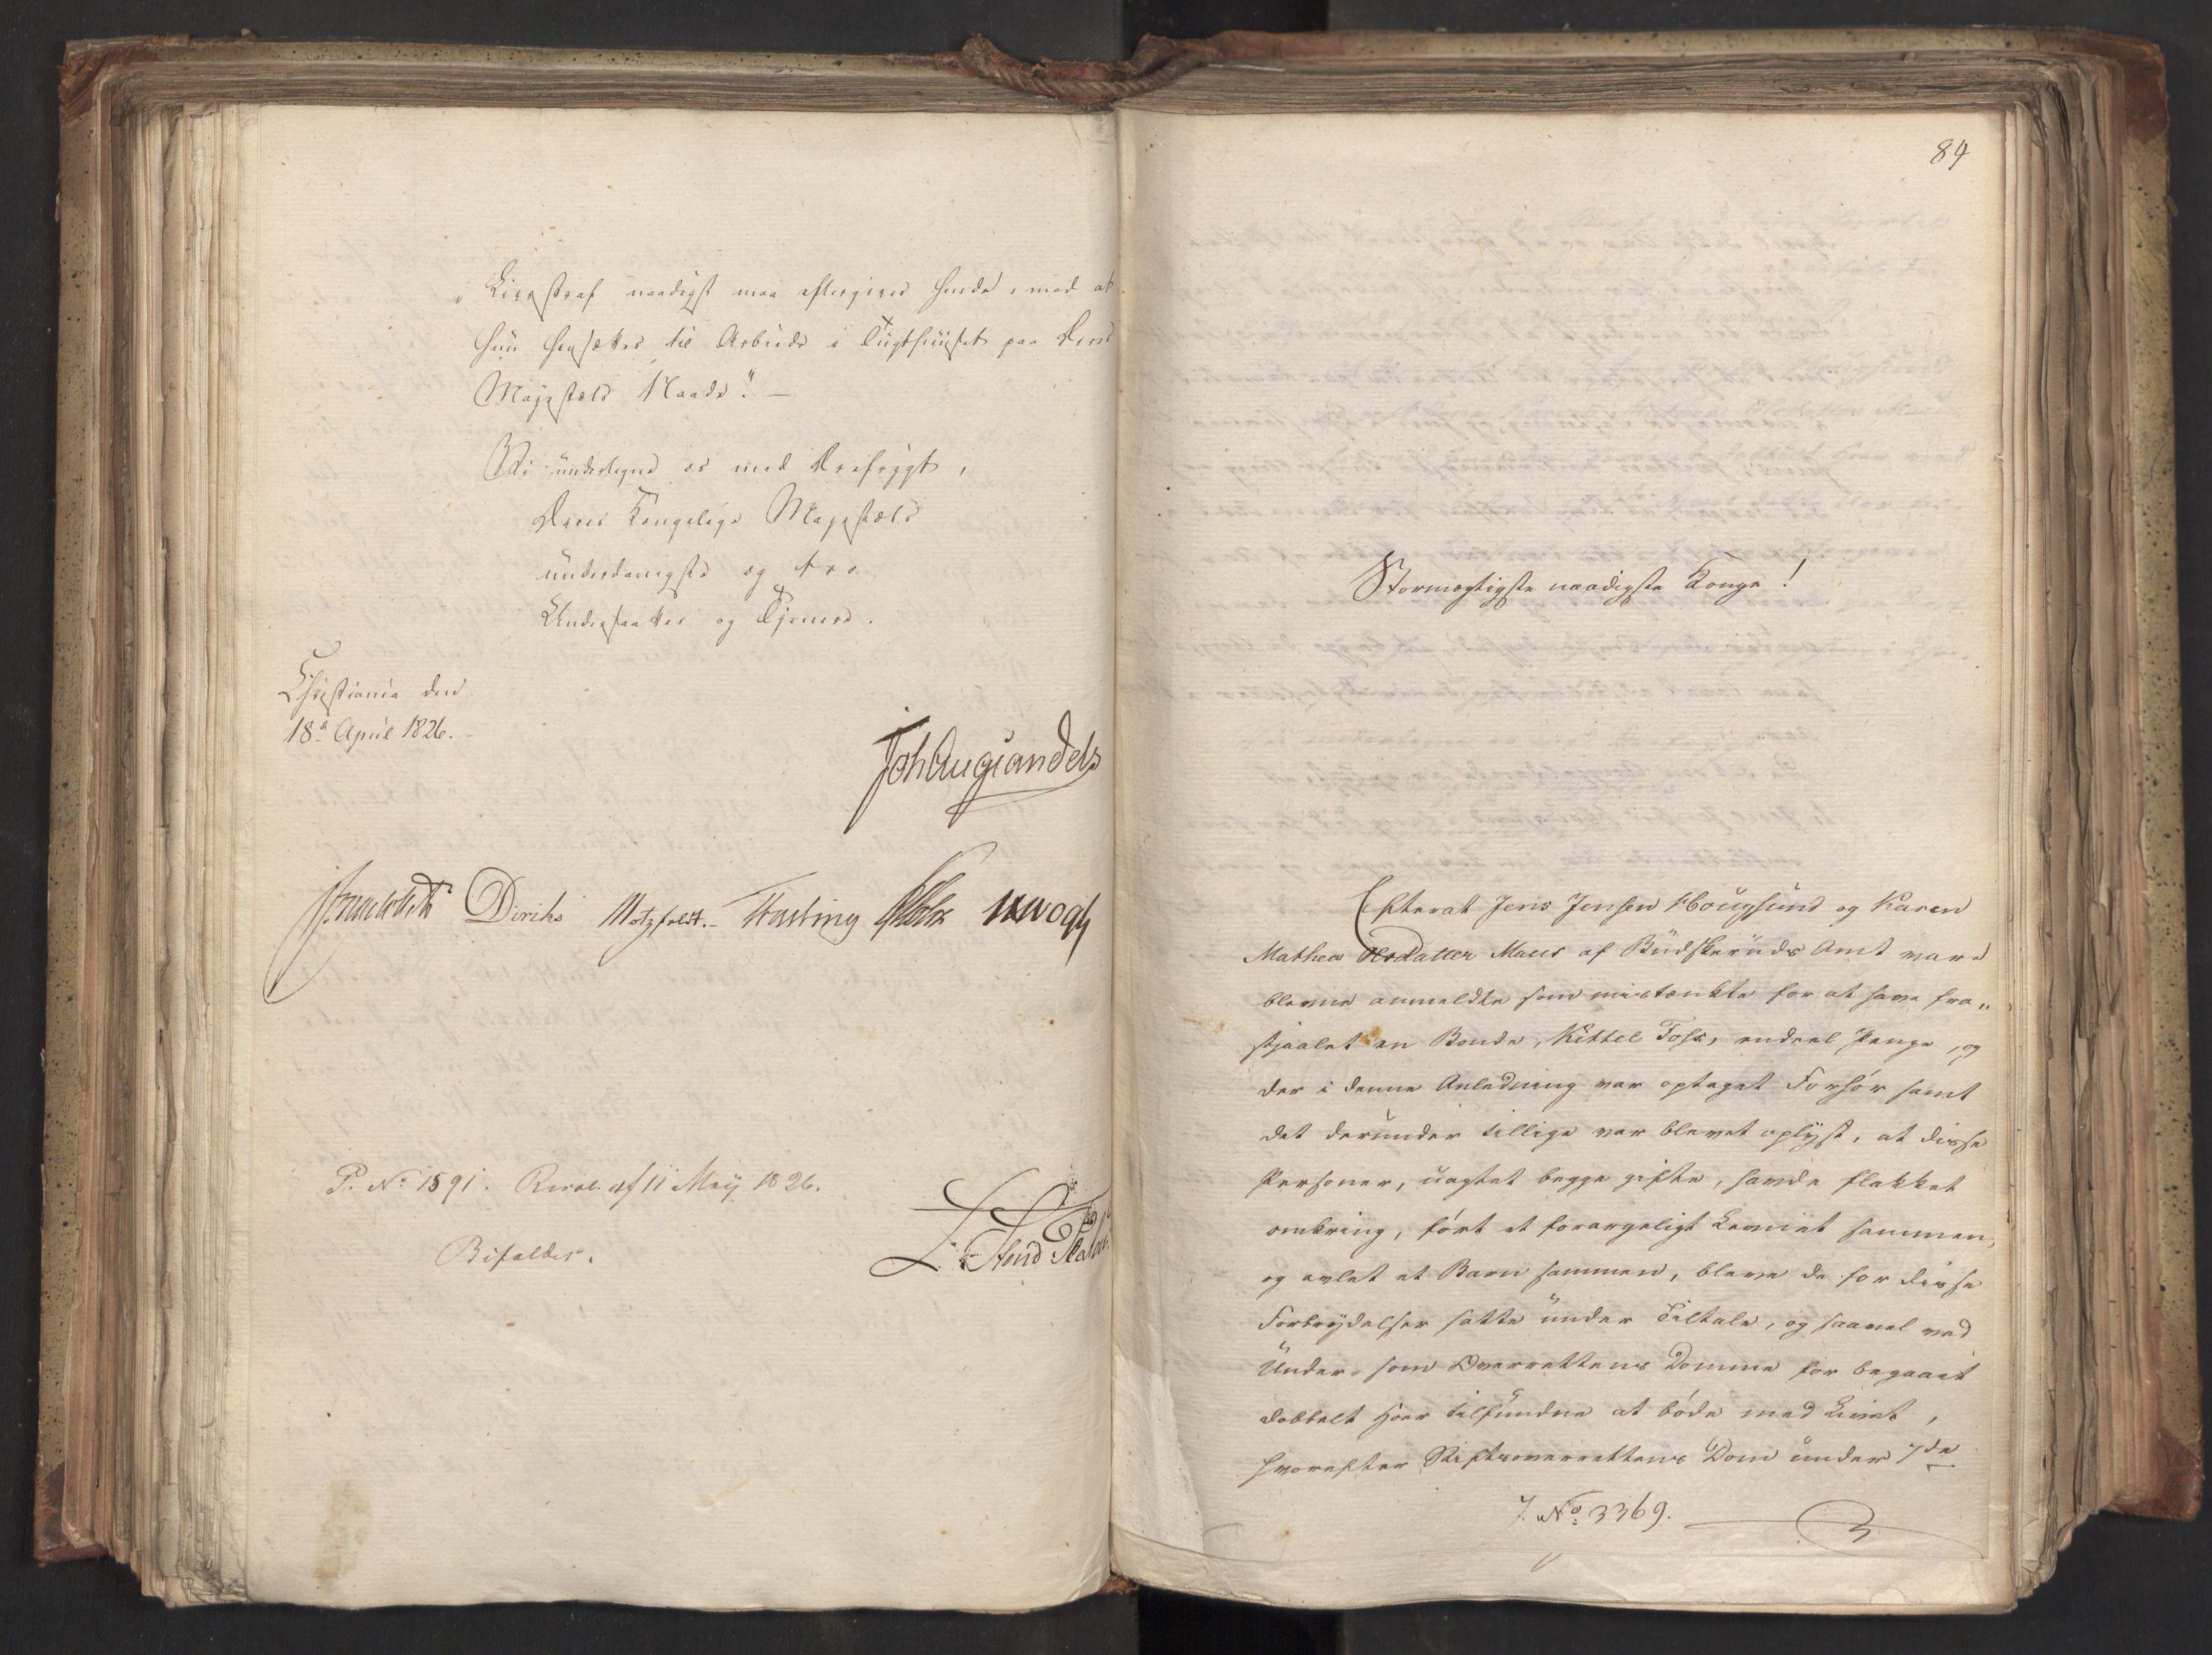 „Livsstraf naadigst maa eftergives hende, mod at
hun hensættes til Arbeide i Tugthuuset paa Deres
Majestæts Naade." —
Vi undertegne os med Ærefrygt,
Deres Kongelige Majestæts
underdanigste og troe
Undersaatter og Tjenere.
Christiania den
18de April 1826.
Joh Aug Sandels
Diriks Motzfeldt. Fasting JHVogt
P. No 1591. Resol. af 11 Maij 1826.
Bifaldes.
84
Stormægtigste naadigste Konge!
Efterat Jens Jensen Hougsund og Karen
Mathea Olsdatter Maur af Budskeruds Amt vare
blevne anmeldte som mistænkte for at have fra„
stjaalet en Bonde, Kittel Foss, endeel Penge, og
der i denne Anledning var optaget Forhør samt
det derunder tillige var blevet oplyst, at disse
Personer, uagtet begge gifte, havde flakket
omkring, ført et forargeligt Levnet sammen,
og avlet et Barn sammen, bleve de for disse
Forbrydelser satte under Tiltale, og saavel ved
Under- som Overrettens Domme for begaaet
dobbelt Hoer tilfundne at bøde med Livet,
hvorefter Stiftsoverrettens Dom under 7de
J. No 3369.